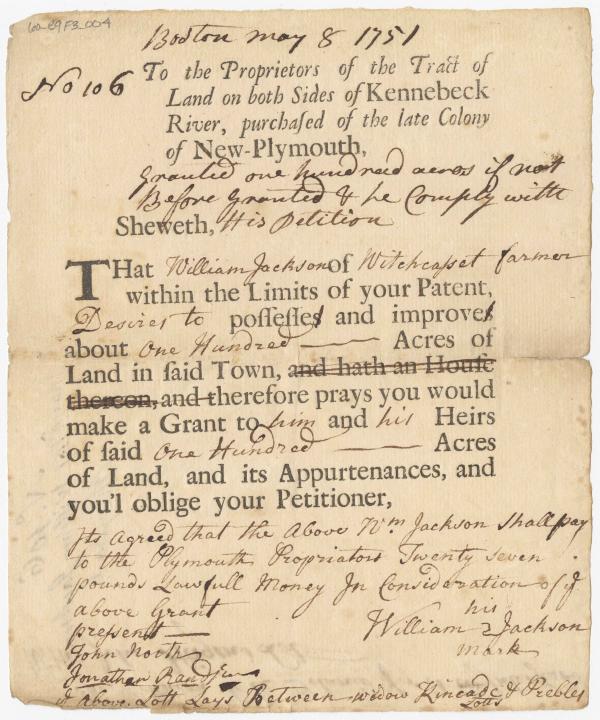 60_E9F3_004
Boston may 8 1751
No 106
To the Proprietors of the Tract of
Land on both Sides of Kennebeck
River, purchaſed of the late Colony
of New-Plymouth,
Granted one hundred acres if not
Before Granted & he Comply with
Sheweth, His Petition
THat William Jackson of Witchcasset farmer
within the Limits of your Patent,
Desires to poſſeſſes and improves
about One Hundred —— Acres of
Land in ſaid Town, and hath an Houſe
thereon, and therefore prays you would
make a Grant to him and his Heirs
of ſaid One Hundred —— Acres
of Land, and its Appurtenances, and
you'l oblige your Petitioner,
Its Agreed that the Above Wm Jackson shall pay
to the Plymouth Propriators Twenty seven
pounds Lawfull Money In Consideration of ye
above Grant
his
pressent —
William 2 Jackson
mark
John North
Jonathan
ye above Lott Lays Between widow Kincade & Prebles
Lotts